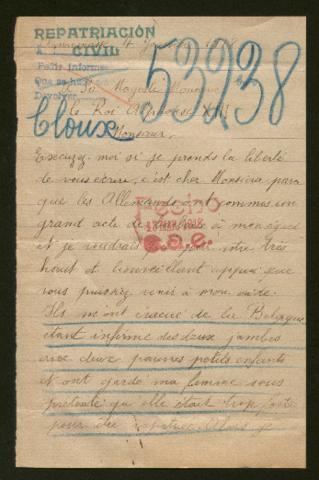 REPATRIACIÓN
CIVIL
Pedir informes
Que se ha
Devolver
53938
Cloux
A Sa Majesté Monsieur
le Roi Alphonse XIII
Monsieur,
Excusez-moi si je prends la liberté
de vous écrire, c'est cher Monsieur parce
que les Allemands ont commis un
grand acte de à mon égard
Et je voudrais votre très
haut et bienveillant appui que
vous puissiez venir à mon aide.
Ils m'ont évacué de la Belgique
étant infirme des deux jambes
avec deux pauvres petits enfants
Et ont gardé ma femme sous
prétexte qu'elle était trop forte
pour être rapatriée. Alors je
Fecho
S.a.e.